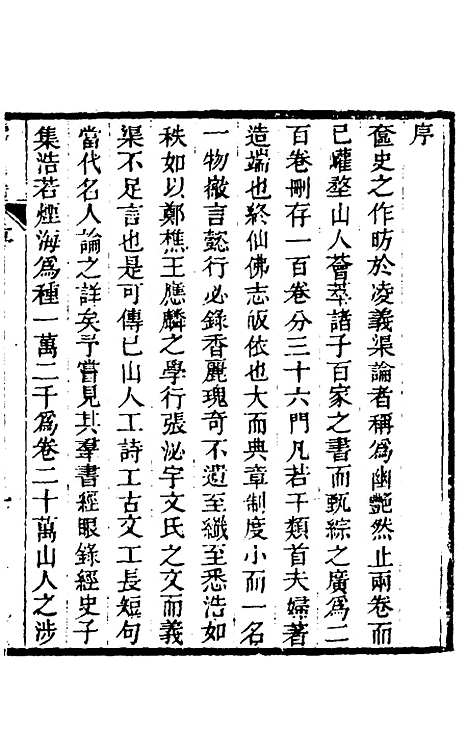 序
奩史之作昉於凌義渠論者稱爲幽艷然止兩卷而
已嶫嶅山人薈萃諸子百家之書而甄綜之廣爲二
百卷刪存一百卷分三十六門凡若干類首夫婦著
造端也終仙佛志皈依也大而典章制度小而一名
一物微言懿行必錄香麗瑰奇不遺至纖至悉浩如
秩如以鄭樵王應麟之學行張泌宇文氏之文而義
渠不足言也是可傳已山人工詩工古文工長短句
當代名人論之詳矣予嘗見其羣書經眼錄經史子
集浩若煙海爲種一萬二千爲卷二十萬山人之涉